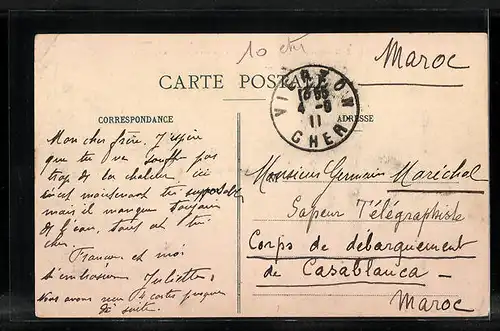 10 ctm
Maroc
CARTE POSTALE
VIERZON
4 - 8
11
CHER
CORRESPONDANCE
ADRESSE
Mon cher frère, J'espère
que tu ne souffre pas
trop de la chaleur ici
c'est maintenant très supportable
mais il manque toujours
de l'eau, tout est très
cher.
France et moi
t'embrassons Juliette.
Nous avons reçu 4 cartes jusque
de suite.
Monsieur Germain Maréchal
Sapeur Télégraphiste
Corps de débarquement
de Casablanca
Maroc